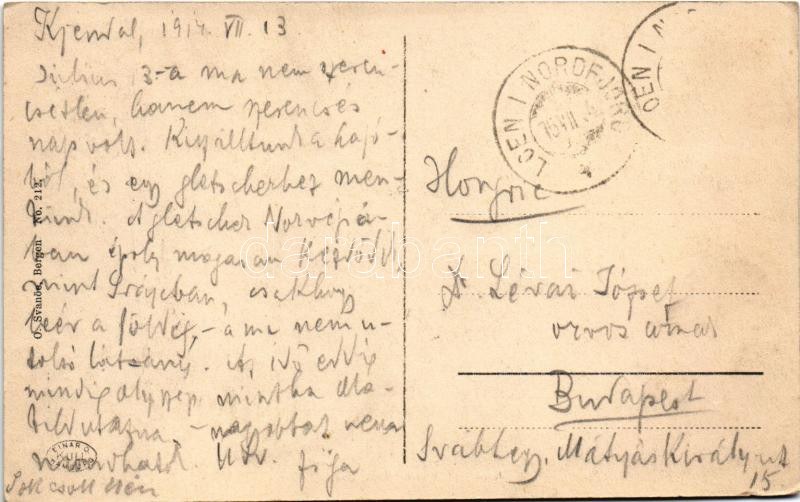 Kjendal, 1914. VII. 13
Július 13-a ma nem szeren-
csétlen, hanem szerencsés
nap volt. Kiszálltunk a hajó-
ból, és egy gletscherhez men-
tünk. A gletscher Norvégiá-
ban époly magasan kezdődik
mint Svájcban, csakhogy
leér a földig, - a mi nem u-
tolsó látvány. Az idő eddig
mindig oly szép mintha
- nagyobbat nem
Üdv.
Sok csók
O. Svanöe, Bergen No. 212
EINAR
LOEN I NORDFJORD
15 VII
OEN I N
Hongrie
Dr Lévai József
orvos úrnak
Budapest
Svábhegy, Mátyás Király út
15.
darabanth